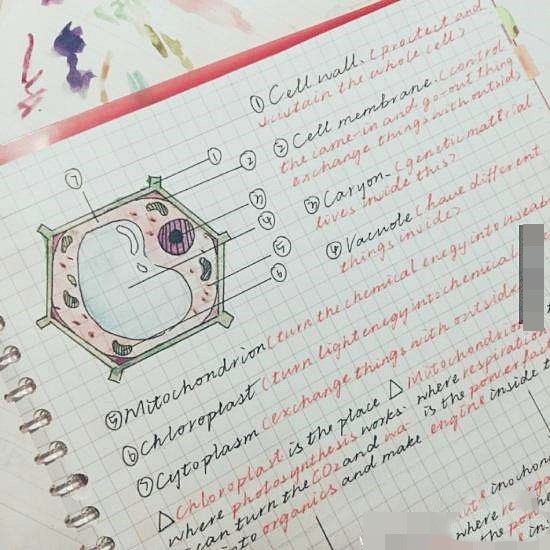 ① Cell wall. (protect and
sustain the whole cell)
② Cell membrane. (control
the came-in and go-out thing
exchange things with outside
③ Caryon. (genetic mattrial
lives inside this)
④ Vacuole (have different
things inside)
⑦
①
②
③
④
⑤
⑥
⑤ Mitochondrion (turn the chemical enegy into useab
⑥ Chloroplast (turn light enegy into chemical
⑦ Cytoplasm (exchange things with outside
△ Chloroplast is the place
where photosynthesis works
can turn the CO2 and wa
into organics and make
△ Mitochondrion
where respiration
is the powerful
engine inside t
inochon
where re
the pow